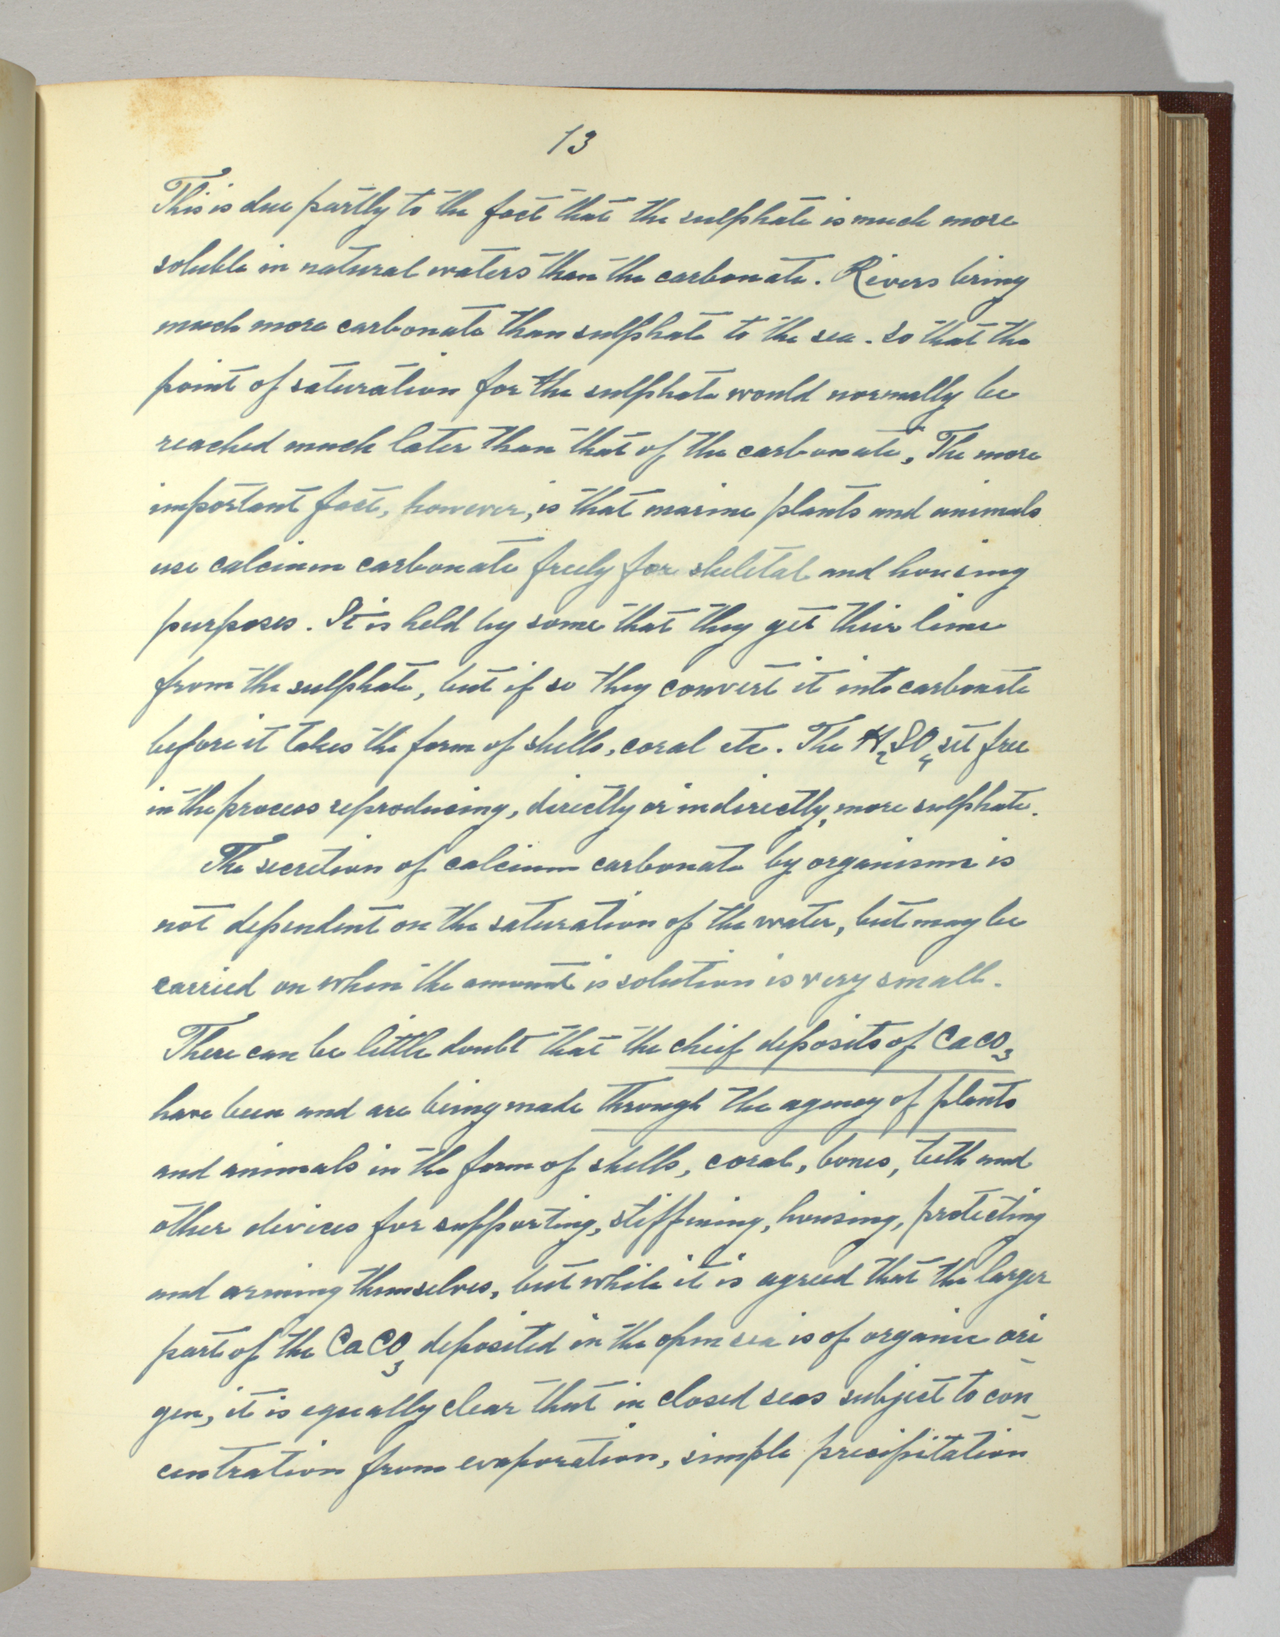 13
This is due partly to the fact that the sulphate is much more
soluble in natural waters than the carbonate. Rivers bring
much more carbonate than sulphate to the sea. So that the
point of saturation for the sulphate would normally be
reached much later than that of the carbonate, The more
important fact, however, is that marine plants and animals
use calcium carbonate freely for skeletal and housing
purposes. It is held by some that they get their lime
from the sulphate, but if so they convert it into carbonate
before it takes the form of shells, coral etc. The H₂SO₄ set free
in the process reproducing, directly or indirectly, more sulphate.
The secretion of calcium carbonate by organisms is
not dependent on the saturation of the water, but may be
carried on when the amount is solution is very small.
There can be little doubt that the chief deposits of CaCO₃
have been and are being made through the agency of plants
and animals in the form of shells, coral, bones, teeth and
other devices for supporting, stiffening, housing, protecting
and arming themselves, but while it is agreed that the larger
part of the CaCO₃ deposited in the open sea is of organic ori-
gin, it is equally clear that in closed seas subject to con-
centration from evaporation, simple precipitation